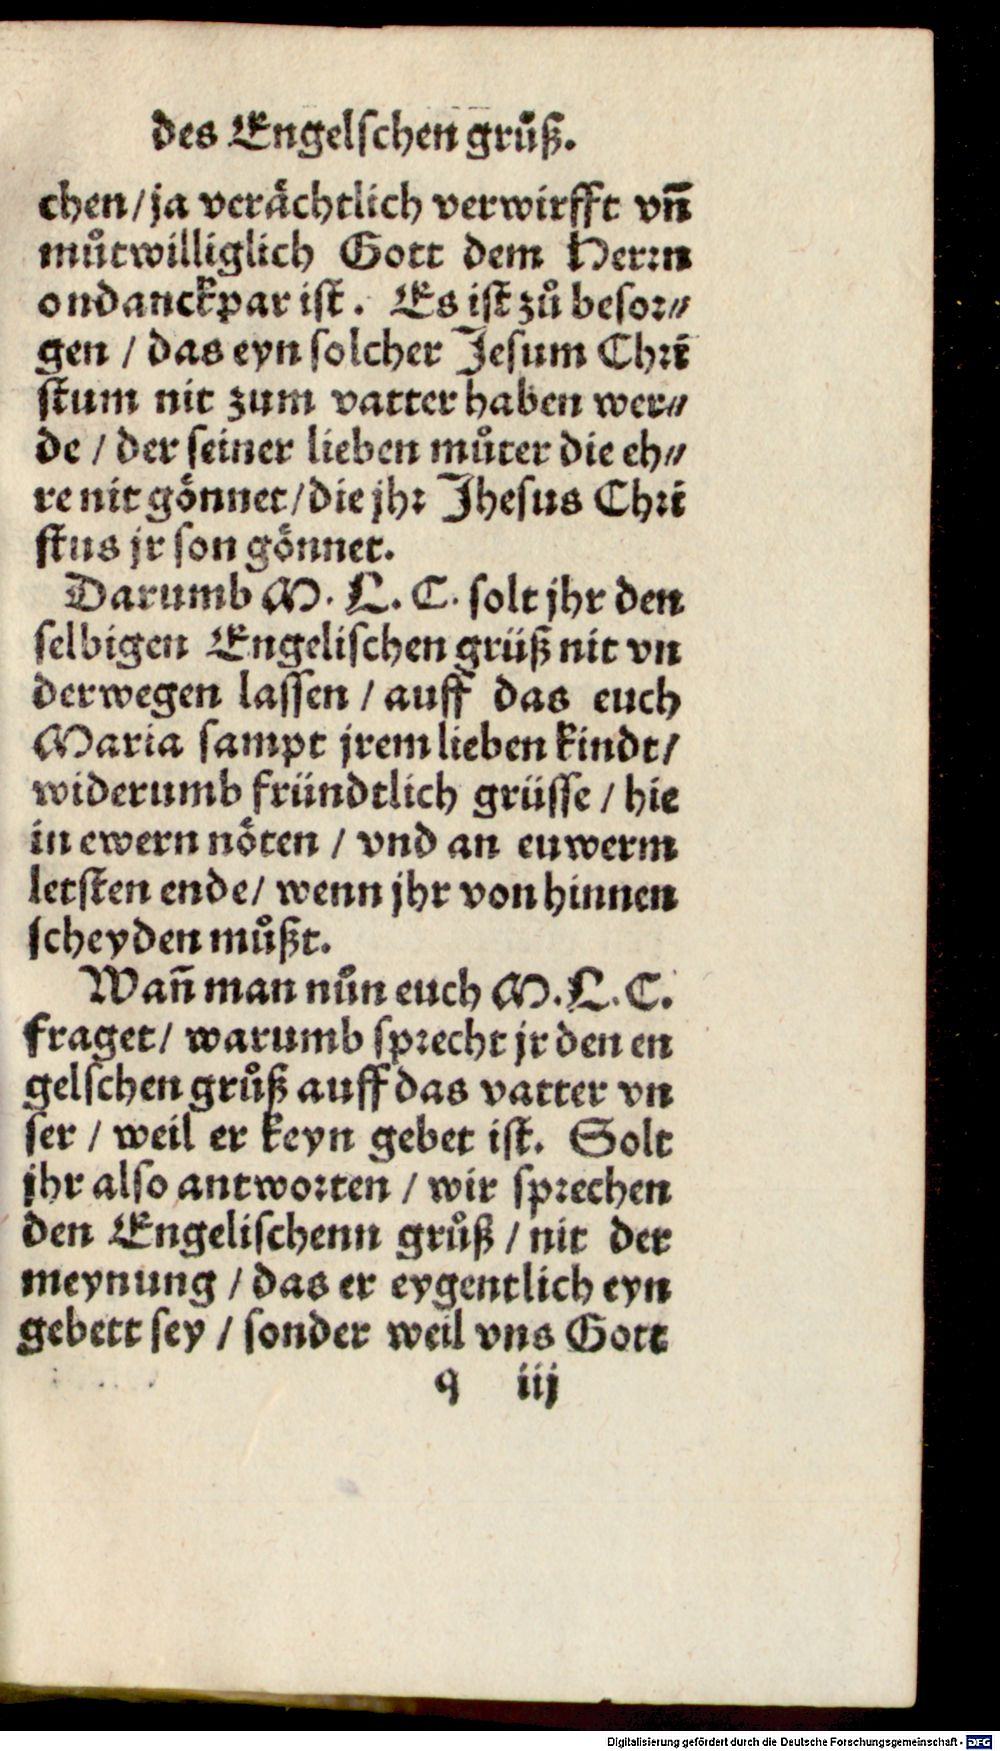 des Engelſchen gruͦß.
chen / ja veraͤchtlich verwirfft vñ
muͦtwilliglich Gott dem Herꝛn
ondanckpar iſt. Es iſt zuͦ beſoꝛ⸗
gen / das eyn ſolcher Jeſum Chꝛi
ſtum nit zum vatter haben wer⸗
de / der ſeiner lieben muͦter die eh⸗
re nit goͤnnet / die jhꝛ Jheſus Chꝛi
ſtus jr ſon goͤnnet.
Darumb M. L. C. ſolt jhr den
ſelbigen Engeliſchen grüß nit vn
derwegen laſſen / auff das euch
Maria ſampt jrem lieben kindt /
widerumb fründtlich grüſſe / hie
in ewern noͤten / vnd an euwerm
letſten ende / wenn jhr von hinnen
ſcheyden muͦßt.
Wañ man nuͦn euch M. L. C.
fraget / warumb ſpꝛecht jr den en
gelſchen gruͦß auff das vatter vn
ſer / weil er keyn gebet iſt. Solt
jhr alſo antwoꝛten / wir ſpꝛechen
den Engeliſchenn gruͦß / nit der
meynung / das er eygentlich eyn
gebett ſey / ſonder weil vns Gott
q iij
Digitalisierung gefördert durch die Deutsche Forschungsgemeinschaft - DFG